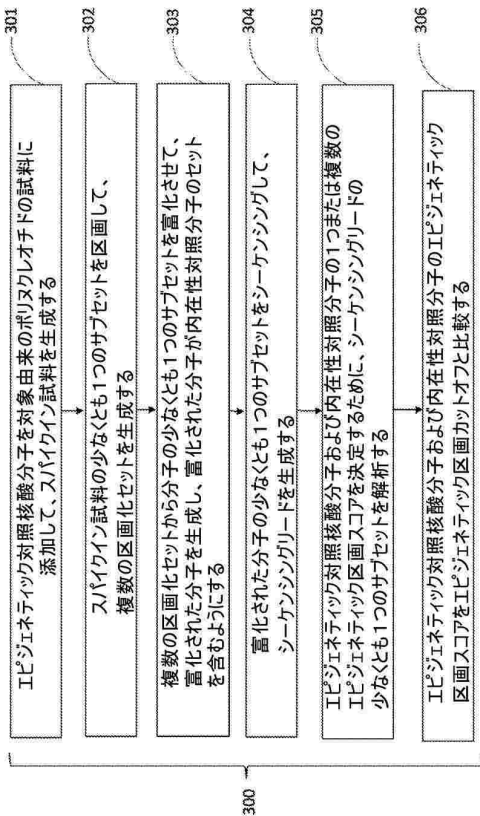 301
エピジェネティック対照核酸分子を対象由来のポリヌクレオチドの試料に
添加して、スパイクイン試料を生成する
302
スパイクイン試料の少なくとも1つのサブセットを区画して、
複数の区画化セットを生成する
303
複数の区画化セットから分子の少なくとも1つのサブセットを富化させて、
富化された分子を生成し、富化された分子が内在性対照分子のセット
を含むようにする
304
富化された分子の少なくとも1つのサブセットをシーケンシングして、
シーケンシングリードを生成する
305
エピジェネティック対照核酸分子および内在性対照分子の1つまたは複数の
エピジェネティック区画スコアを決定するために、シーケンシングリードの
少なくとも1つのサブセットを解析する
306
エピジェネティック対照核酸分子および内在性対照分子のエピジェネティック
区画スコアをエピジェネティック区画カットオフと比較する
300